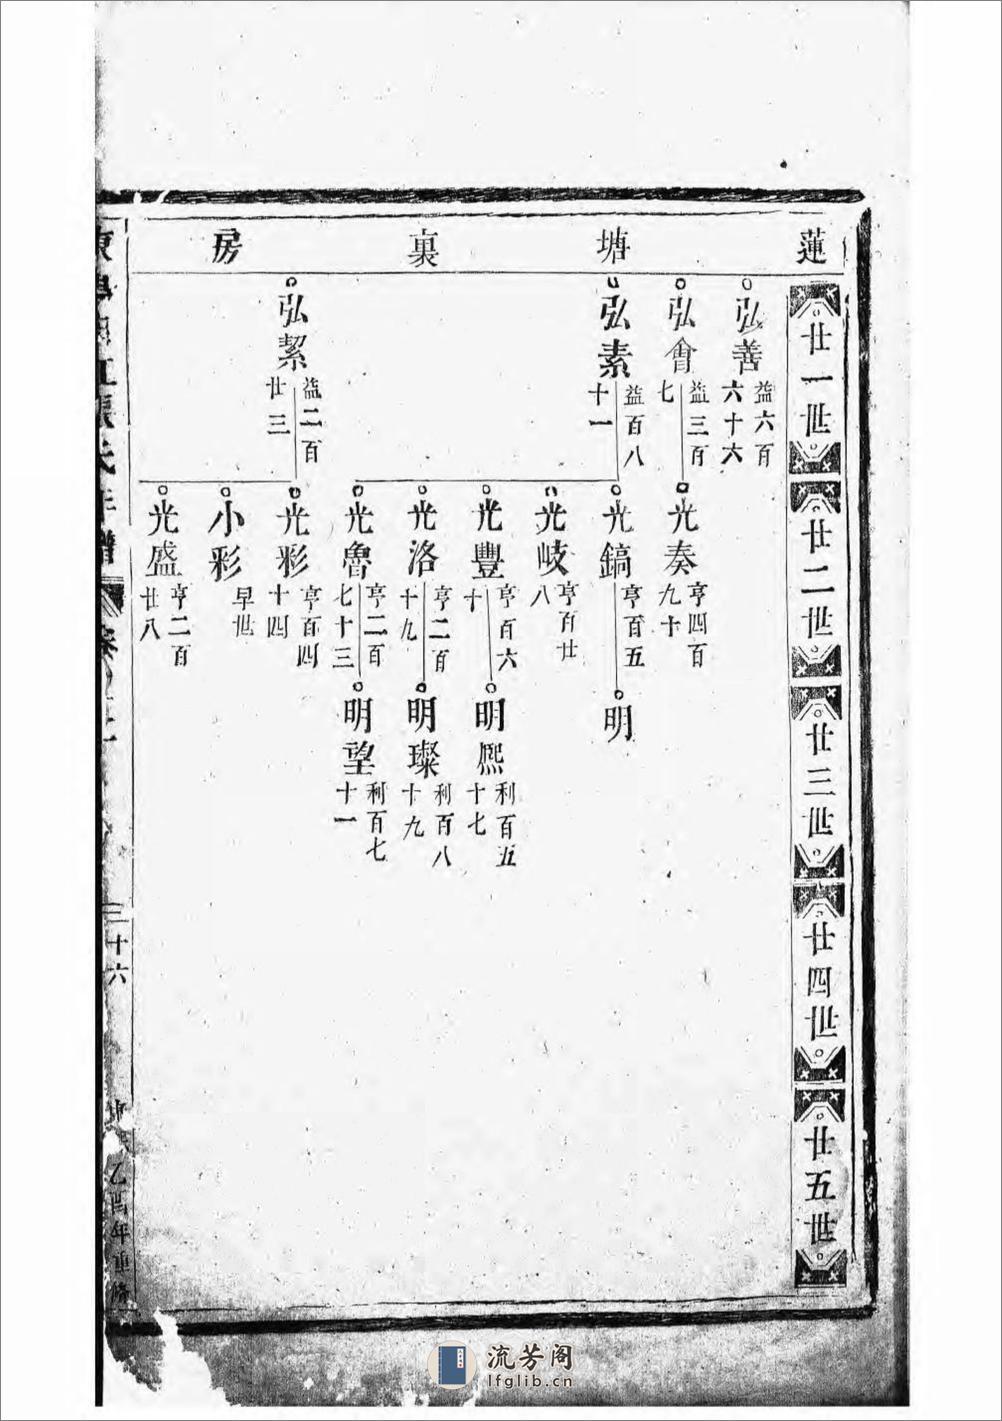 蓮塘裏房
廿一世
廿二世
廿三世
廿四世
廿五世
弘善
益六百
六十六
弘會
益三百
七
光奏
亨四百
九十
弘素
益百八
十一
光鎬
亨百五
明
光岐
亨百廿
八
光豐
亨百六
十
明熙
利百五
十七
光洛
亨二百
十九
明璨
利百八
十九
光魯
亨二百
七十三
明望
利百七
十一
弘絜
益二百
廿三
光彩
亨百四
十四
小彩
早世
光盛
亨二百
廿八
三十六
乙酉年重脩
流芳阁
lfglib.cn